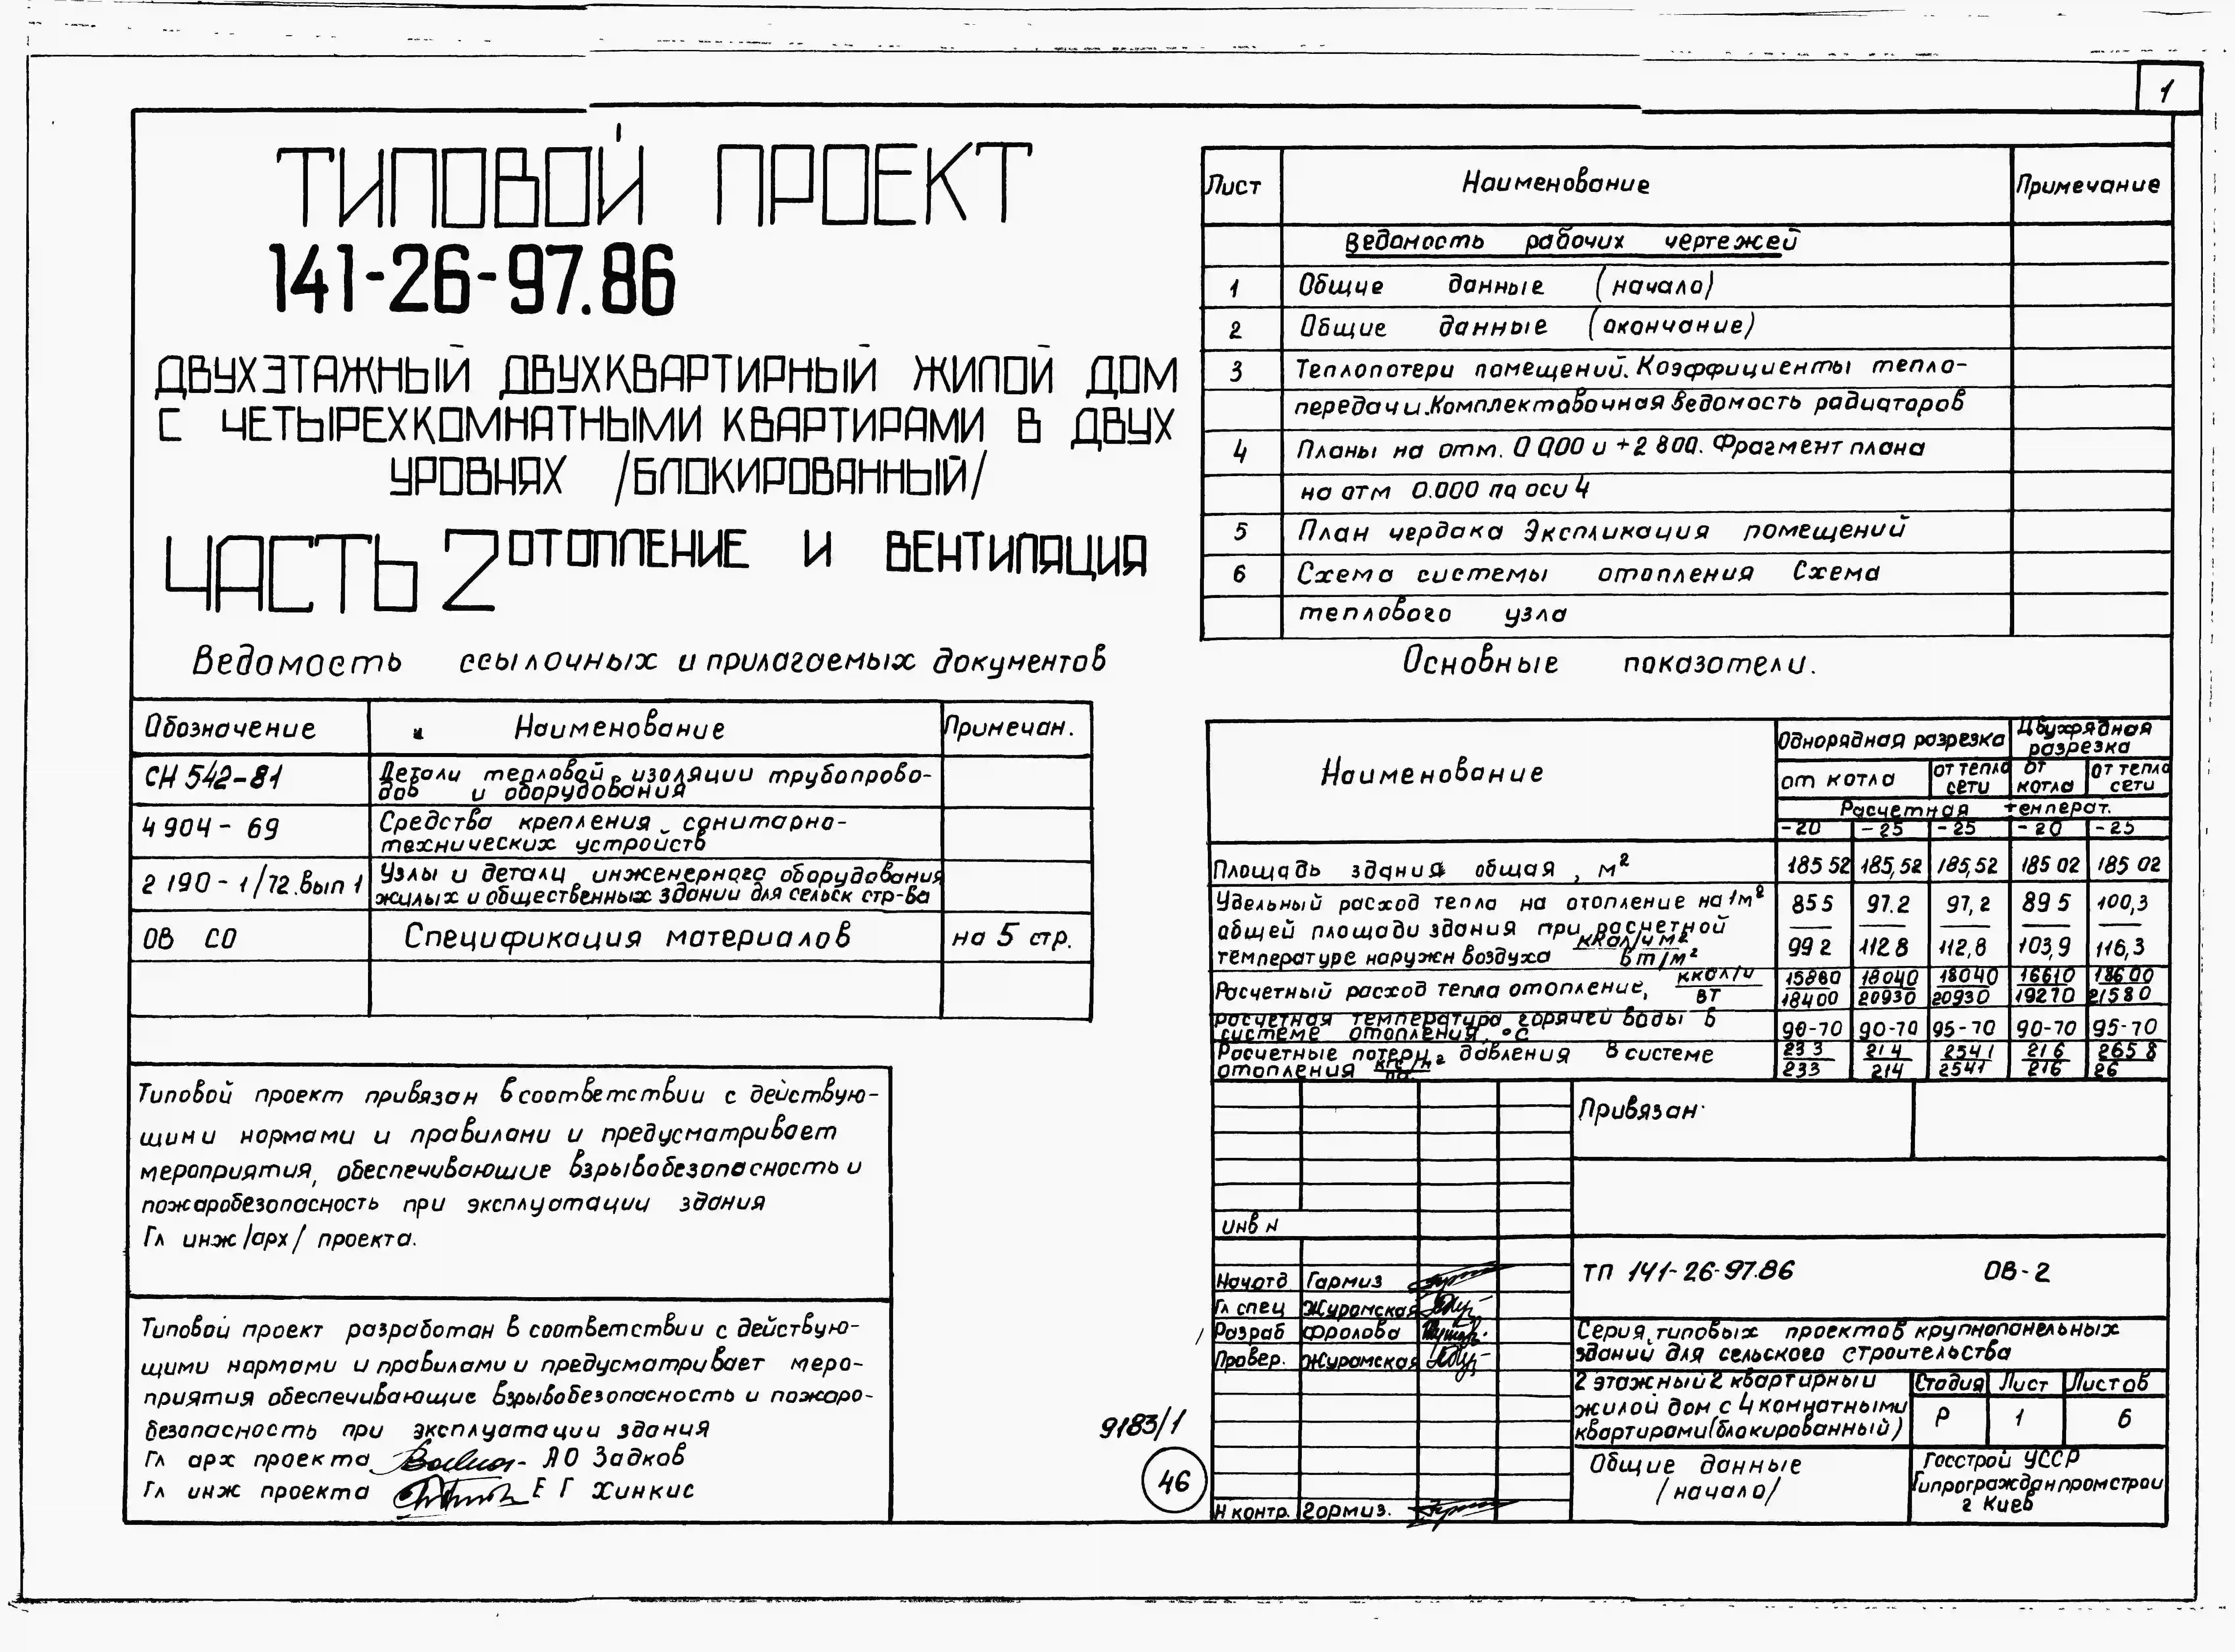 1
ТИПОВОЙ ПРОЕКТ
141-26-97.86
ДВУХЭТАЖНЫЙ ДВУХКВАРТИРНЫЙ ЖИЛОЙ ДОМ
С ЧЕТЫРЕХКОМНАТНЫМИ КВАРТИРАМИ В ДВУХ
УРОВНЯХ /БЛОКИРОВАННЫЙ/
ЧАСТЬ 2 ОТОПЛЕНИЕ И ВЕНТИЛЯЦИЯ
Ведомость ссылочных и прилагаемых документов
Обозначение Наименование Примечан.
СН 542-81 Детали тепловой изоляции трубопрово-
дов и оборудования
4 904 - 69 Средства крепления санитарно-
технических устройств
2 190 - 1/72.вып 1 Узлы и детали инженерного оборудования
жилых и общественных здании для сельск стр-ва
ОВ СО Спецификация материалов на 5 стр.
Типовой проект привязан в соответствии с действую-
щими нормами и правилами и предусматривает
мероприятия, обеспечивающие взрывобезопасность и
пожаробезопасность при эксплуатации здания
Гл инж /арх/ проекта.
Типовой проект разработан в соответствии с действую-
щими нормами и правилами и предусматривает меро-
приятия обеспечивающие взрывобезопасность и пожаро-
безопасность при эксплуатации здания
Гл арх проекта А О Задков
Гл инж проекта Е Г Хинкис
Лист Наименование Примечание
Ведомость рабочих чертежей
1 Общие данные (начало)
2 Общие данные (окончание)
3 Теплопотери помещений. Коэффициенты тепло-
передачи. Комплектовочная ведомость радиаторов
4 Планы на отм. 0 000 и +2 800. Фрагмент плана
на отм 0.000 по оси 4
5 План чердака Экспликация помещений
6 Схема системы отопления Схема
теплового узла
Основные показатели.
Наименование Однорядная разрезка Двухрядная разрезка
от котла от тепло сети от котла от тепло сети
Расчетная температ.
-20 -25 -25 -20 -25
Площадь здания общая, м² 185 52 185,52 185,52 185 02 185 02
Удельный расход тепла на отопление на 1м² 85 5 97.2 97,2 89 5 100,3
общей площади здания при расчетной
температуре наружн воздуха ккал/ч м² Вт/м² 99 2 112 8 112,8 103,9 116,3
Расчетный расход тепла отопление, ккал/ч 15860 18040 18040 16610 18600
Вт 18400 20930 20930 19270 21580
расчетная температура горячей воды в
системе отопления, °С 90-70 90-70 95-70 90-70 95-70
Расчетные потери давления в системе 23 3 21 4 254 1 21 6 265 8
отопления 233 214 2541 216 26
Привязан·
инв N
ТП 141-26-97.86 ОВ-2
Нач отд Гармиз
Гл спец Журамская
Разраб Фролова
Провер. Журамская
Н контр. Гормиз.
Серия типовых проектов крупнопанельных
зданий для сельского строительства
2 этажный 2 квартирный
жилой дом с 4 комнатными
квартирами (блокированный)
Стадия Лист Листов
Р 1 6
Общие данные
/начало/
Госстрой УССР
Гипрогражданпромстрой
г Киев
9183/1
46